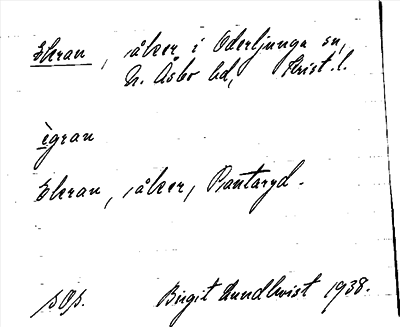 Ekran, åker i Oderljunga sn,
N. Åsbo hd, Krist. l.
ègran
Ekran, åker, Rantaryd.
Birgit Lundkvist 1938.